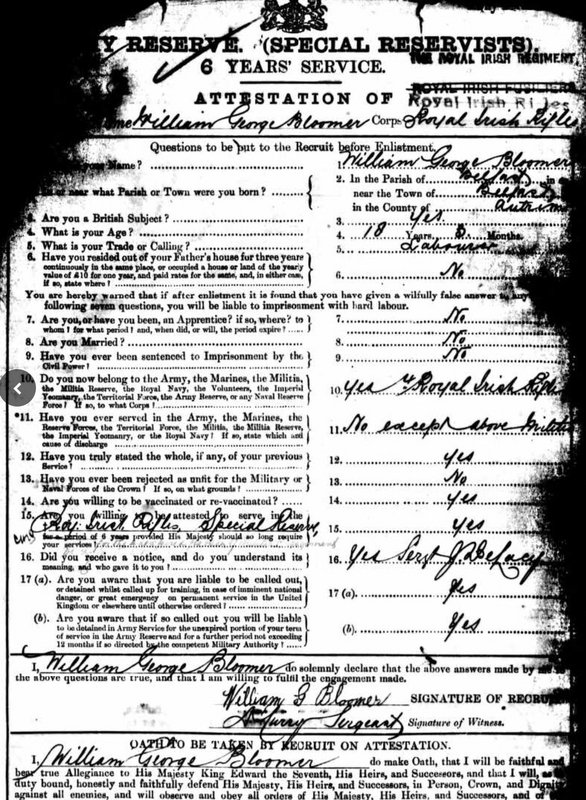 Y RESERVE. (SPECIAL RESERVISTS).
6 YEARS' SERVICE.
THE ROYAL IRISH REGIMENT,
ROYAL IRISH FUSILIERS
ATTESTATION OF
Royal Irish Rifles
me William George Bloomer Corps Royal Irish Rifles
Questions to be put to the Recruit before Enlistment.
your Name? 1. William George Bloomer
2. In the Parish of Belfast in
in or near what Parish or Town were you born? near the Town of Belfast
in the County of Antrim
3. Are you a British Subject? 3. Yes
4. What is your Age? 4. 18 Years. 5 Months.
5. What is your Trade or Calling? 5. Labourer
6. Have you resided out of your Father's house for three years
continuously in the same place, or occupied a house or land of the yearly
value of £10 for one year, and paid rates for the same, and, in either case,
if so, state where? 6. No
You are hereby warned that if after enlistment it is found that you have given a wilfully false answer to any
following seven questions, you will be liable to imprisonment with hard labour.
7. Are you, or have you been, an Apprentice? if so, where? to
whom? for what period? and, when did, or will, the period expire? 7. No
8. Are you Married? 8. No
9. Have you ever been sentenced to Imprisonment by the
Civil Power? 9. No
10. Do you now belong to the Army, the Marines, the Militia,
the Militia Reserve, the Royal Navy, the Volunteers, the Imperial
Yeomanry, the Territorial Force, the Army Reserve, or any Naval Reserve
Force? If so, to what Corps? 10. Yes Royal Irish Rifles
*11. Have you ever served in the Army, the Marines, the
Reserve Forces, the Territorial Force, the Militia, the Militia Reserve,
the Imperial Yeomanry, or the Royal Navy? If so, state which and
cause of discharge 11. No except above Militia
12. Have you truly stated the whole, if any, of your previous
Service? 12. Yes
13. Have you ever been rejected as unfit for the Military or
Naval Forces of the Crown? If so, on what grounds? 13. No
14. Are you willing to be vaccinated or re-vaccinated? 14. Yes
15. Are you willing to be attested to serve in the
Roy. Irish Rifles, Special Reserve,
for a period of 6 years provided His Majesty should so long require
your services? 15. Yes
16. Did you receive a notice, and do you understand its
meaning, and who gave it to you? 16. Yes Sergt
17 (a). Are you aware that you are liable to be called out,
or detained whilst called up for training, in case of imminent national
danger, or great emergency on permanent service in the United
Kingdom or elsewhere until otherwise ordered? 17 (a). Yes
(b). Are you aware that if so called out you will be liable
to be detained in Army Service for the unexpired portion of your term
of service in the Army Reserve and for a further period not exceeding
12 months if so directed by the competent Military Authority? (b). Yes
I, William George Bloomer do solemnly declare that the above answers made by me
the above questions are true, and that I am willing to fulfil the engagement made.
William G Bloomer SIGNATURE OF RECRUIT
Sergeant Signature of Witness.
OATH TO BE TAKEN BY RECRUIT ON ATTESTATION.
I, William George Bloomer do make Oath, that I will be faithful and
bear true Allegiance to His Majesty King Edward the Seventh, His Heirs, and Successors, and that I will, as
duty bound, honestly and faithfully defend His Majesty, His Heirs, and Successors, in Person, Crown, and Dignity
against all enemies, and will observe and obey all orders of His Majesty, His Heirs, and Successors, and of